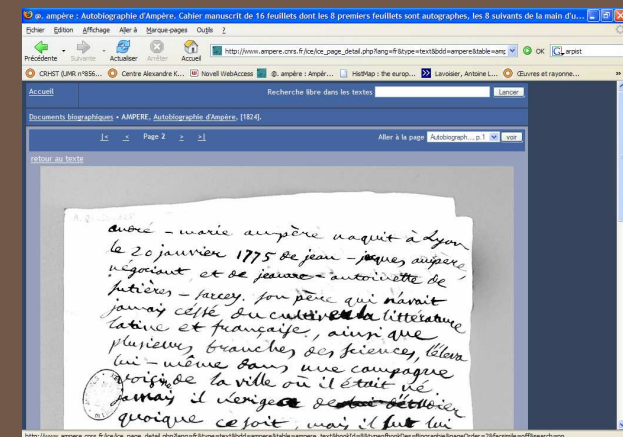 @. ampère : Autobiographie d'Ampère. Cahier manuscrit de 16 feuillets dont les 8 premiers feuillets sont autographes, les 8 suivants de la main d'u...
Fichier Edition Affichage Aller à Marque-pages Outils ?
Précédente Suivante Actualiser Arrêter Accueil http://www.ampere.cnrs.fr/ice/ice_page_detail.php?lang=fr&type=text&bdd=ampere&table=amp OK arpist
CRHST (UMR n°856... Centre Alexandre K... Novell WebAccess @. ampère : Ampèr... HistMap : the europ... Lavoisier, Antoine L... Œuvres et rayonne... »
Accueil Recherche libre dans les textes Lancer
Documents biographiques • AMPERE, Autobiographie d'Ampère, [1824].
|< < Page 2 > >| Aller à la page Autobiograph..., p.1 voir
retour au texte
andré - marie ampère naquit à Lyon
le 20 janvier 1775 de jean - jaques ampère,
négociant, et de jeanne - antoinette de
sutières - sarcey. son père qui n'avait
jamais cessé de cultiver la littérature
latine et française, ainsi que
plusieurs branches des sciences, l'éleva
lui - même dans une campagne
voisine de la ville où il était né
jamais il n'exigea
quoique ce soit, mais il sut lui